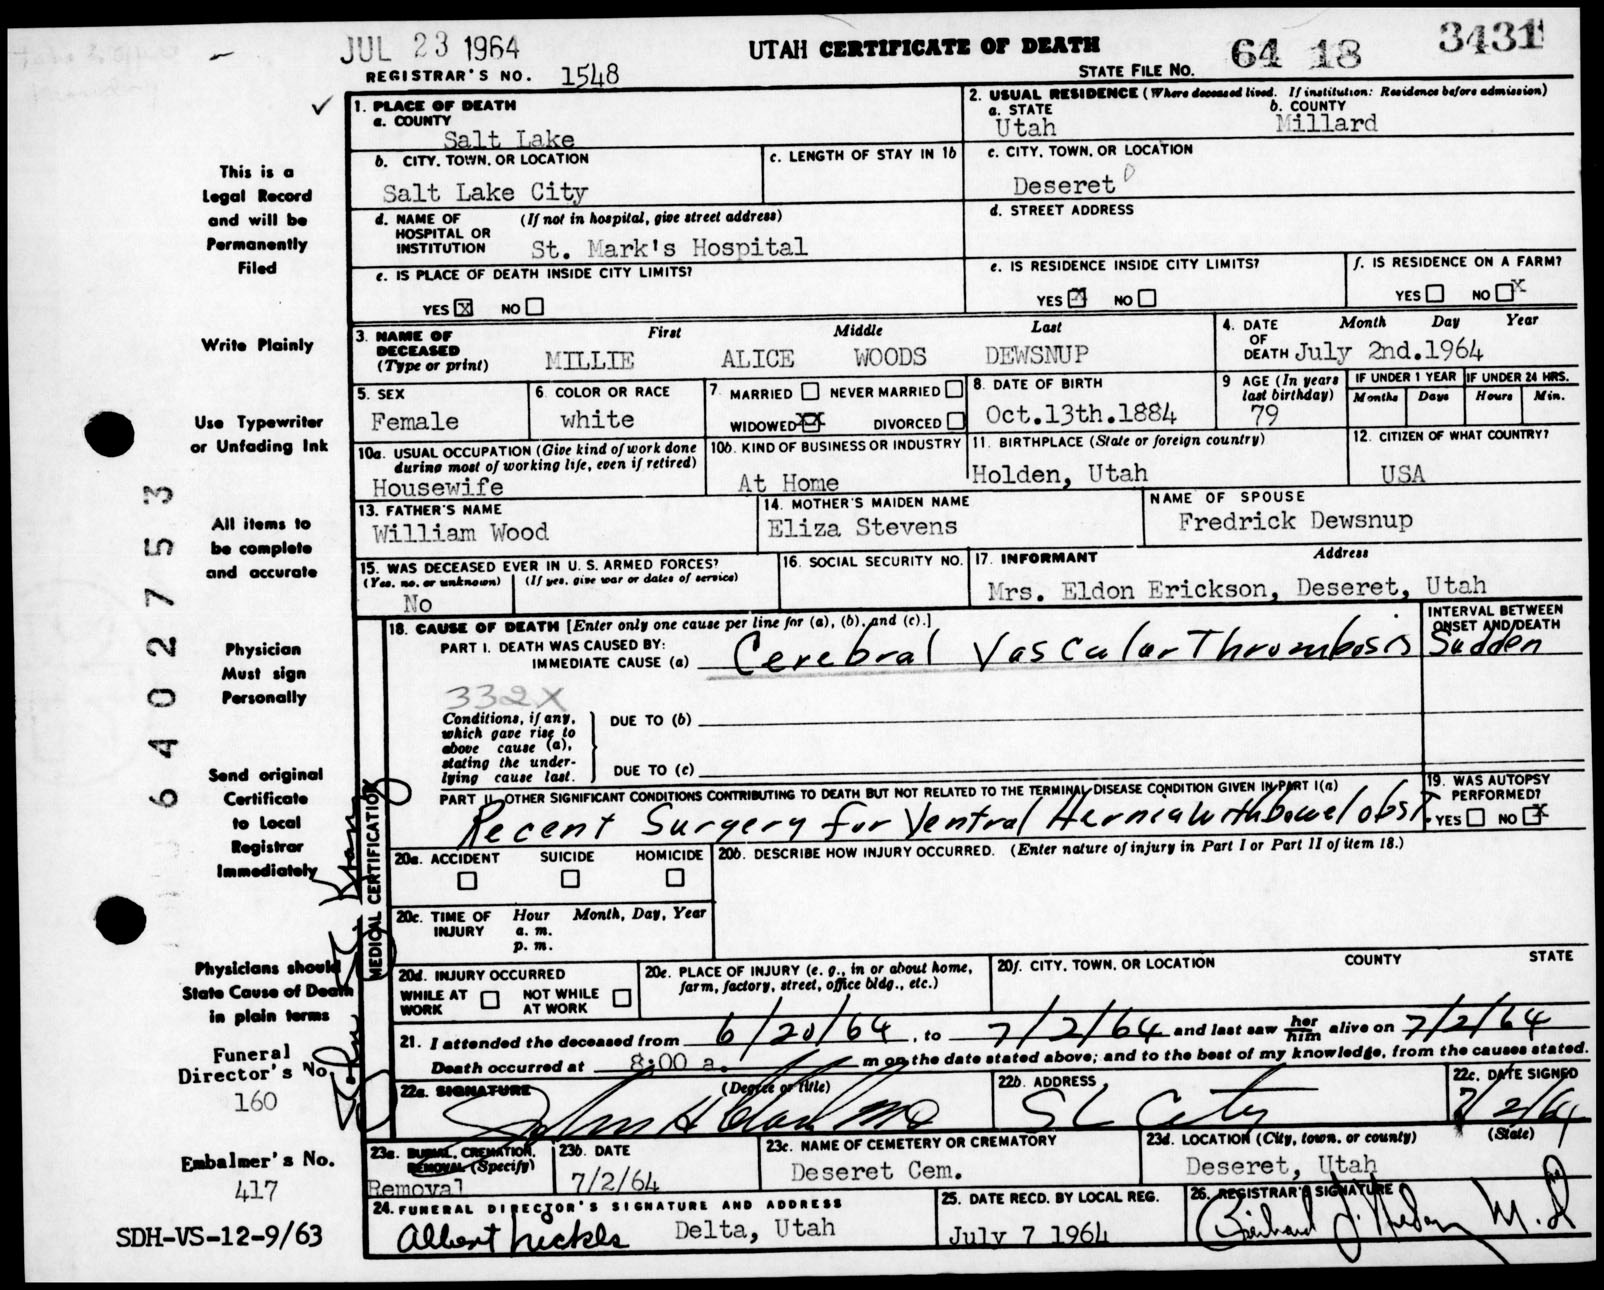 JUL 23 1964
UTAH CERTIFICATE OF DEATH
64 18 3431
REGISTRAR'S NO. 1548
STATE FILE NO.
1. PLACE OF DEATH
a. COUNTY
Salt Lake
2. USUAL RESIDENCE (Where deceased lived. If institution: Residence before admission)
a. STATE b. COUNTY
Utah Millard
b. CITY, TOWN, OR LOCATION
Salt Lake City
c. LENGTH OF STAY IN 1b
c. CITY, TOWN, OR LOCATION
Deseret
d. NAME OF HOSPITAL OR INSTITUTION (If not in hospital, give street address)
St. Mark's Hospital
d. STREET ADDRESS
e. IS PLACE OF DEATH INSIDE CITY LIMITS?
YES X NO
e. IS RESIDENCE INSIDE CITY LIMITS?
YES X NO
f. IS RESIDENCE ON A FARM?
YES NO X
3. NAME OF DECEASED (Type or print)
First Middle Last
MILLIE ALICE WOODS DEWSNUP
4. DATE OF DEATH Month Day Year
July 2nd.1964
5. SEX
Female
6. COLOR OR RACE
white
7. MARRIED NEVER MARRIED
WIDOWED X DIVORCED
8. DATE OF BIRTH
Oct.13th.1884
9 AGE (In years last birthday)
79
IF UNDER 1 YEAR
Months Days
IF UNDER 24 HRS.
Hours Min.
10a. USUAL OCCUPATION (Give kind of work done during most of working life, even if retired)
Housewife
10b. KIND OF BUSINESS OR INDUSTRY
At Home
11. BIRTHPLACE (State or foreign country)
Holden, Utah
12. CITIZEN OF WHAT COUNTRY?
USA
13. FATHER'S NAME
William Wood
14. MOTHER'S MAIDEN NAME
Eliza Stevens
NAME OF SPOUSE
Fredrick Dewsnup
15. WAS DECEASED EVER IN U. S. ARMED FORCES?
(Yes, no, or unknown) (If yes, give war or dates of service)
No
16. SOCIAL SECURITY NO.
17. INFORMANT Address
Mrs. Eldon Erickson, Deseret, Utah
18. CAUSE OF DEATH [Enter only one cause per line for (a), (b), and (c).]
PART I. DEATH WAS CAUSED BY:
IMMEDIATE CAUSE (a) Cerebral Vascular Thrombosis
INTERVAL BETWEEN ONSET AND DEATH
Sudden
332X
Conditions, if any, which gave rise to above cause (a), stating the underlying cause last.
DUE TO (b)
DUE TO (c)
PART II. OTHER SIGNIFICANT CONDITIONS CONTRIBUTING TO DEATH BUT NOT RELATED TO THE TERMINAL DISEASE CONDITION GIVEN IN PART I(a)
Recent Surgery for Ventral Hernia with bowel obst.
19. WAS AUTOPSY PERFORMED?
YES NO X
20a. ACCIDENT SUICIDE HOMICIDE
20b. DESCRIBE HOW INJURY OCCURRED. (Enter nature of injury in Part I or Part II of item 18.)
20c. TIME OF INJURY Hour Month, Day, Year
a. m.
p. m.
20d. INJURY OCCURRED
WHILE AT WORK NOT WHILE AT WORK
20e. PLACE OF INJURY (e. g., in or about home, farm, factory, street, office bldg., etc.)
20f. CITY, TOWN, OR LOCATION COUNTY STATE
21. I attended the deceased from 6/20/64, to 7/2/64 and last saw her him alive on 7/2/64
Death occurred at 8:00 a. m on the date stated above; and to the best of my knowledge, from the causes stated.
22a. SIGNATURE (Degree or title)
22b. ADDRESS
SL City
22c. DATE SIGNED
7/2/64
23a. BURIAL, CREMATION, REMOVAL (Specify)
Removal
23b. DATE
7/2/64
23c. NAME OF CEMETERY OR CREMATORY
Deseret Cem.
23d. LOCATION (City, town, or county) (State)
Deseret, Utah
24. FUNERAL DIRECTOR'S SIGNATURE AND ADDRESS
Albert Nickle Delta, Utah
25. DATE RECD. BY LOCAL REG.
July 7 1964
26. REGISTRAR'S SIGNATURE
M.D
MEDICAL CERTIFICATION
This is a
Legal Record
and will be
Permanently
Filed
Write Plainly
Use Typewriter
or Unfading Ink
All items to
be complete
and accurate
Physician
Must sign
Personally
Send original
Certificate
to Local
Registrar
Immediately
Physicians should
State Cause of Death
in plain terms
Funeral
Director's No.
160
Embalmer's No.
417
SDH-VS-12-9/63
6402753